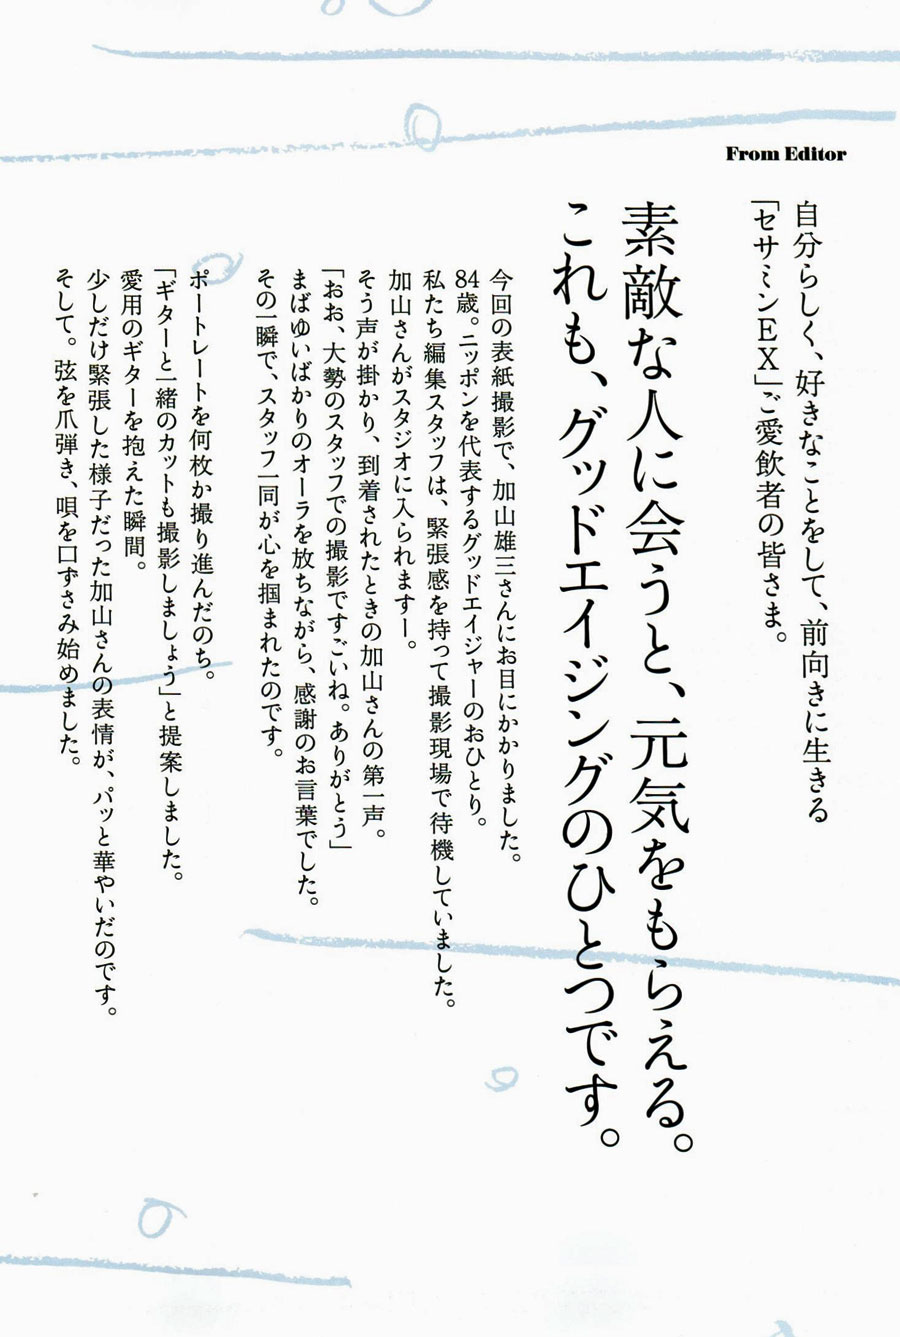 From Editor
自分らしく、好きなことをして、前向きに生きる
「セサミンEX」ご愛飲者の皆さま。
素敵な人に会うと、元気をもらえる。
これも、グッドエイジングのひとつです。
今回の表紙撮影で、加山雄三さんにお目にかかりました。
84歳。ニッポンを代表するグッドエイジャーのおひとり。
私たち編集スタッフは、緊張感を持って撮影現場で待機していました。
加山さんがスタジオに入られますー。
そう声が掛かり、到着されたときの加山さんの第一声。
「おお、大勢のスタッフでの撮影ですごいね。ありがとう」
まばゆいばかりのオーラを放ちながら、感謝のお言葉でした。
その一瞬で、スタッフ一同が心を掴まれたのです。
ポートレートを何枚か撮り進んだのち。
「ギターと一緒のカットも撮影しましょう」と提案しました。
愛用のギターを抱えた瞬間。
少しだけ緊張した様子だった加山さんの表情が、パッと華やいだのです。
そして。弦を爪弾き、唄を口ずさみ始めました。